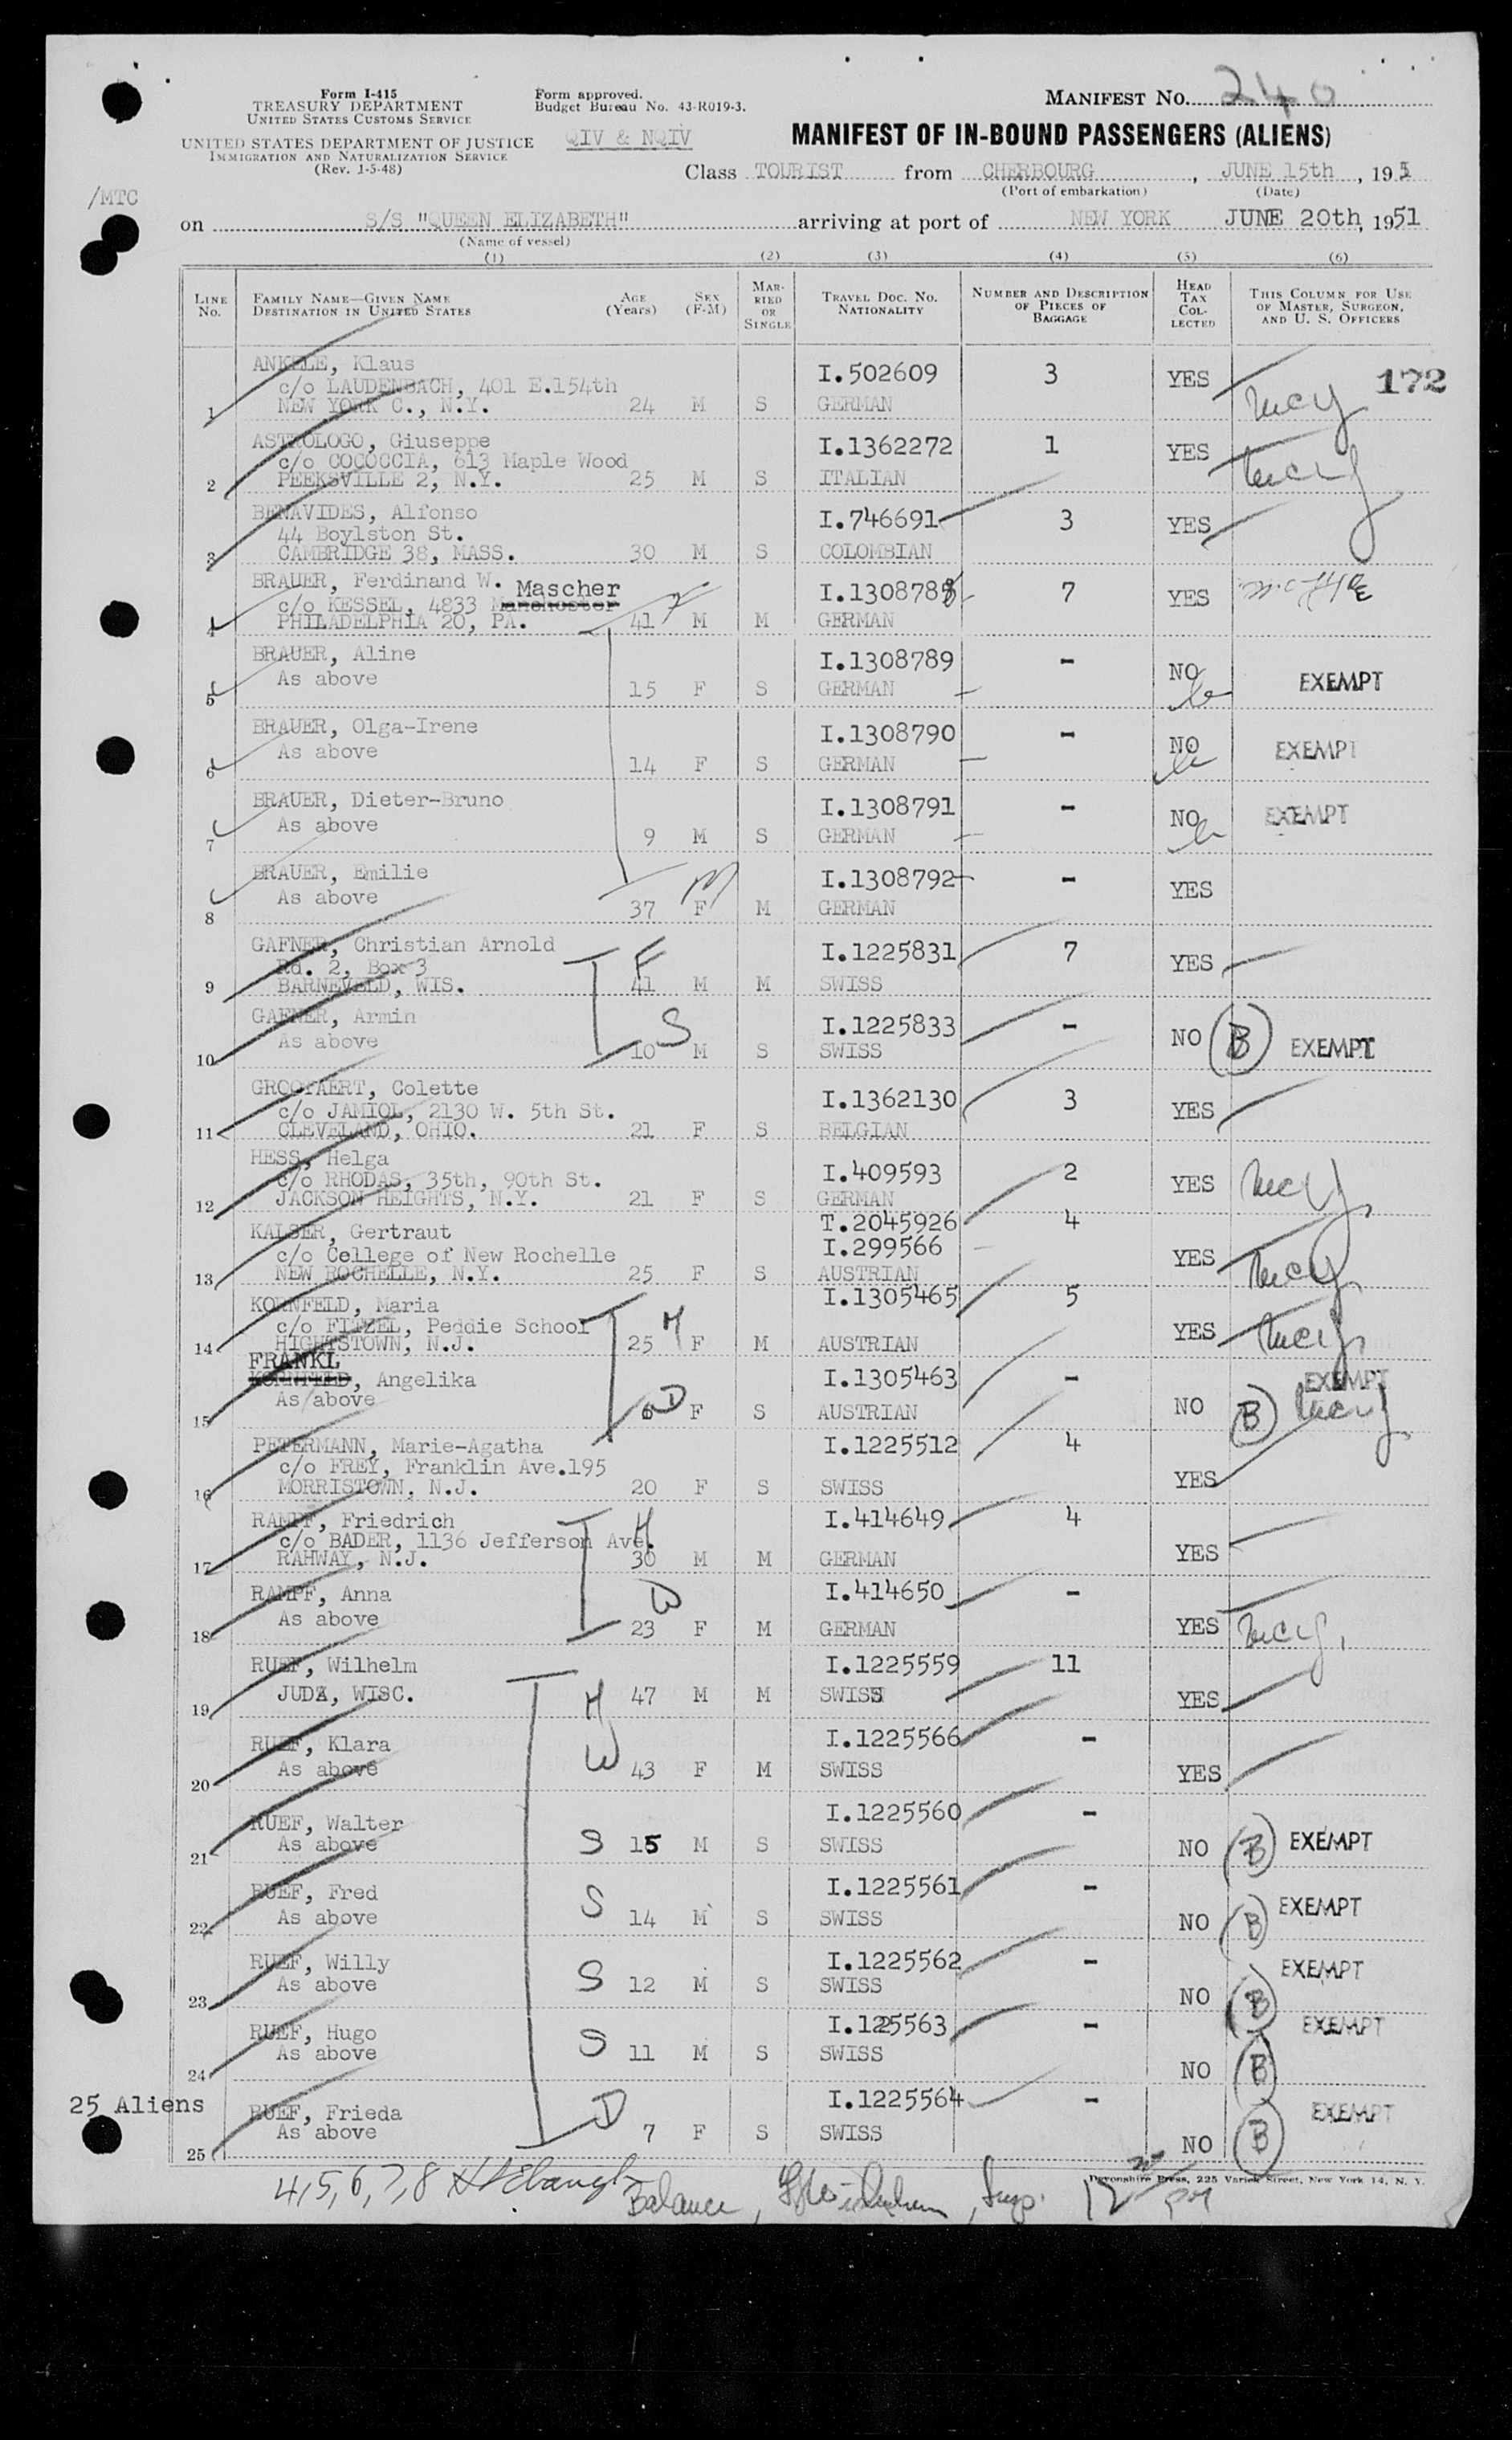 Form I-415
TREASURY DEPARTMENT
UNITED STATES CUSTOMS SERVICE
UNITED STATES DEPARTMENT OF JUSTICE
IMMIGRATION AND NATURALIZATION SERVICE
(Rev. 1-5-48)
Form approved.
Budget Bureau No. 43-R019-3.
QIV & NQIV
MANIFEST NO. 240
MANIFEST OF IN-BOUND PASSENGERS (ALIENS)
Class TOURIST from CHERBOURG, JUNE 15th, 195
(Port of embarkation) (Date)
/MTC
on S/S "QUEEN ELIZABETH" arriving at port of NEW YORK JUNE 20th, 1951
(Name of vessel)
(1) (2) (3) (4) (5) (6)
LINE NO. FAMILY NAME—GIVEN NAME DESTINATION IN UNITED STATES AGE (Years) SEX (F-M) MARRIED OR SINGLE TRAVEL DOC. NO. NATIONALITY NUMBER AND DESCRIPTION OF PIECES OF BAGGAGE HEAD TAX COLLECTED THIS COLUMN FOR USE OF MASTER, SURGEON, AND U. S. OFFICERS
172
ANKELE, Klaus I.502609 3 YES
c/o LAUDENBACH, 401 E.154th
1 NEW YORK C., N.Y. 24 M S GERMAN
ASTROLOGO, Giuseppe I.1362272 1 YES
c/o COCOCCIA, 613 Maple Wood
2 PEEKSVILLE 2, N.Y. 25 M S ITALIAN
BENAVIDES, Alfonso I.746691 3 YES
44 Boylston St.
3 CAMBRIDGE 38, MASS. 30 M S COLOMBIAN
BRAUER, Ferdinand W. I.1308788 7 YES
Mascher
c/o KESSEL, 4833 Manchester
4 PHILADELPHIA 20, PA. 41 M M GERMAN
BRAUER, Aline I.1308789 - NO EXEMPT
5 As above 15 F S GERMAN
BRAUER, Olga-Irene I.1308790 - NO EXEMPT
6 As above 14 F S GERMAN
BRAUER, Dieter-Bruno I.1308791 - NO EXEMPT
7 As above 9 M S GERMAN
BRAUER, Emilie I.1308792 - YES
8 As above 37 F M GERMAN
GAFNER, Christian Arnold F I.1225831 7 YES
Rd. 2, Box 3
9 BARNEVELD, WIS. 41 M M SWISS
GAFNER, Armin S I.1225833 - NO B EXEMPT
10 As above 10 M S SWISS
GROOTAERT, Colette I.1362130 3 YES
c/o JAMIOL, 2130 W. 5th St.
11 CLEVELAND, OHIO. 21 F S BELGIAN
HESS, Helga I.409593 2 YES
c/o RHODAS, 35th, 90th St.
12 JACKSON HEIGHTS, N.Y. 21 F S GERMAN
KAISER, Gertraut T.2045926 4 YES
c/o College of New Rochelle I.299566
13 NEW ROCHELLE, N.Y. 25 F S AUSTRIAN
KORNFELD, Maria H I.1305465 5 YES
c/o FITZEL, Peddie School
14 HIGHTSTOWN, N.J. 25 F M AUSTRIAN
FRANKL
KORNFELD, Angelika I.1305463 - NO B EXEMPT
15 As above 6 D F S AUSTRIAN
PETERMANN, Marie-Agatha I.1225512 4 YES
c/o FREY, Franklin Ave.195
16 MORRISTOWN, N.J. 20 F S SWISS
RAMPF, Friedrich H I.414649 4 YES
c/o BADER, 1136 Jefferson Ave.
17 RAHWAY, N.J. 30 M M GERMAN
RAMPF, Anna W I.414650 - YES
18 As above 23 F M GERMAN
RUEF, Wilhelm I.1225559 11 YES
19 JUDA, WISC. H 47 M M SWISS
RUEF, Klara W I.1225566 - YES
20 As above 43 F M SWISS
RUEF, Walter I.1225560 - NO B EXEMPT
21 As above S 15 M S SWISS
RUEF, Fred I.1225561 - NO B EXEMPT
22 As above S 14 M S SWISS
RUEF, Willy I.1225562 - NO B EXEMPT
23 As above S 12 M S SWISS
RUEF, Hugo I.1225563 - NO B EXEMPT
24 As above S 11 M S SWISS
25 Aliens
RUEF, Frieda D I.1225564 - NO B EXEMPT
25 As above 7 F S SWISS
Devonshire Press, 225 Varick Street, New York 14, N. Y.
4,5,6,7,8
Balance, Insp. 12